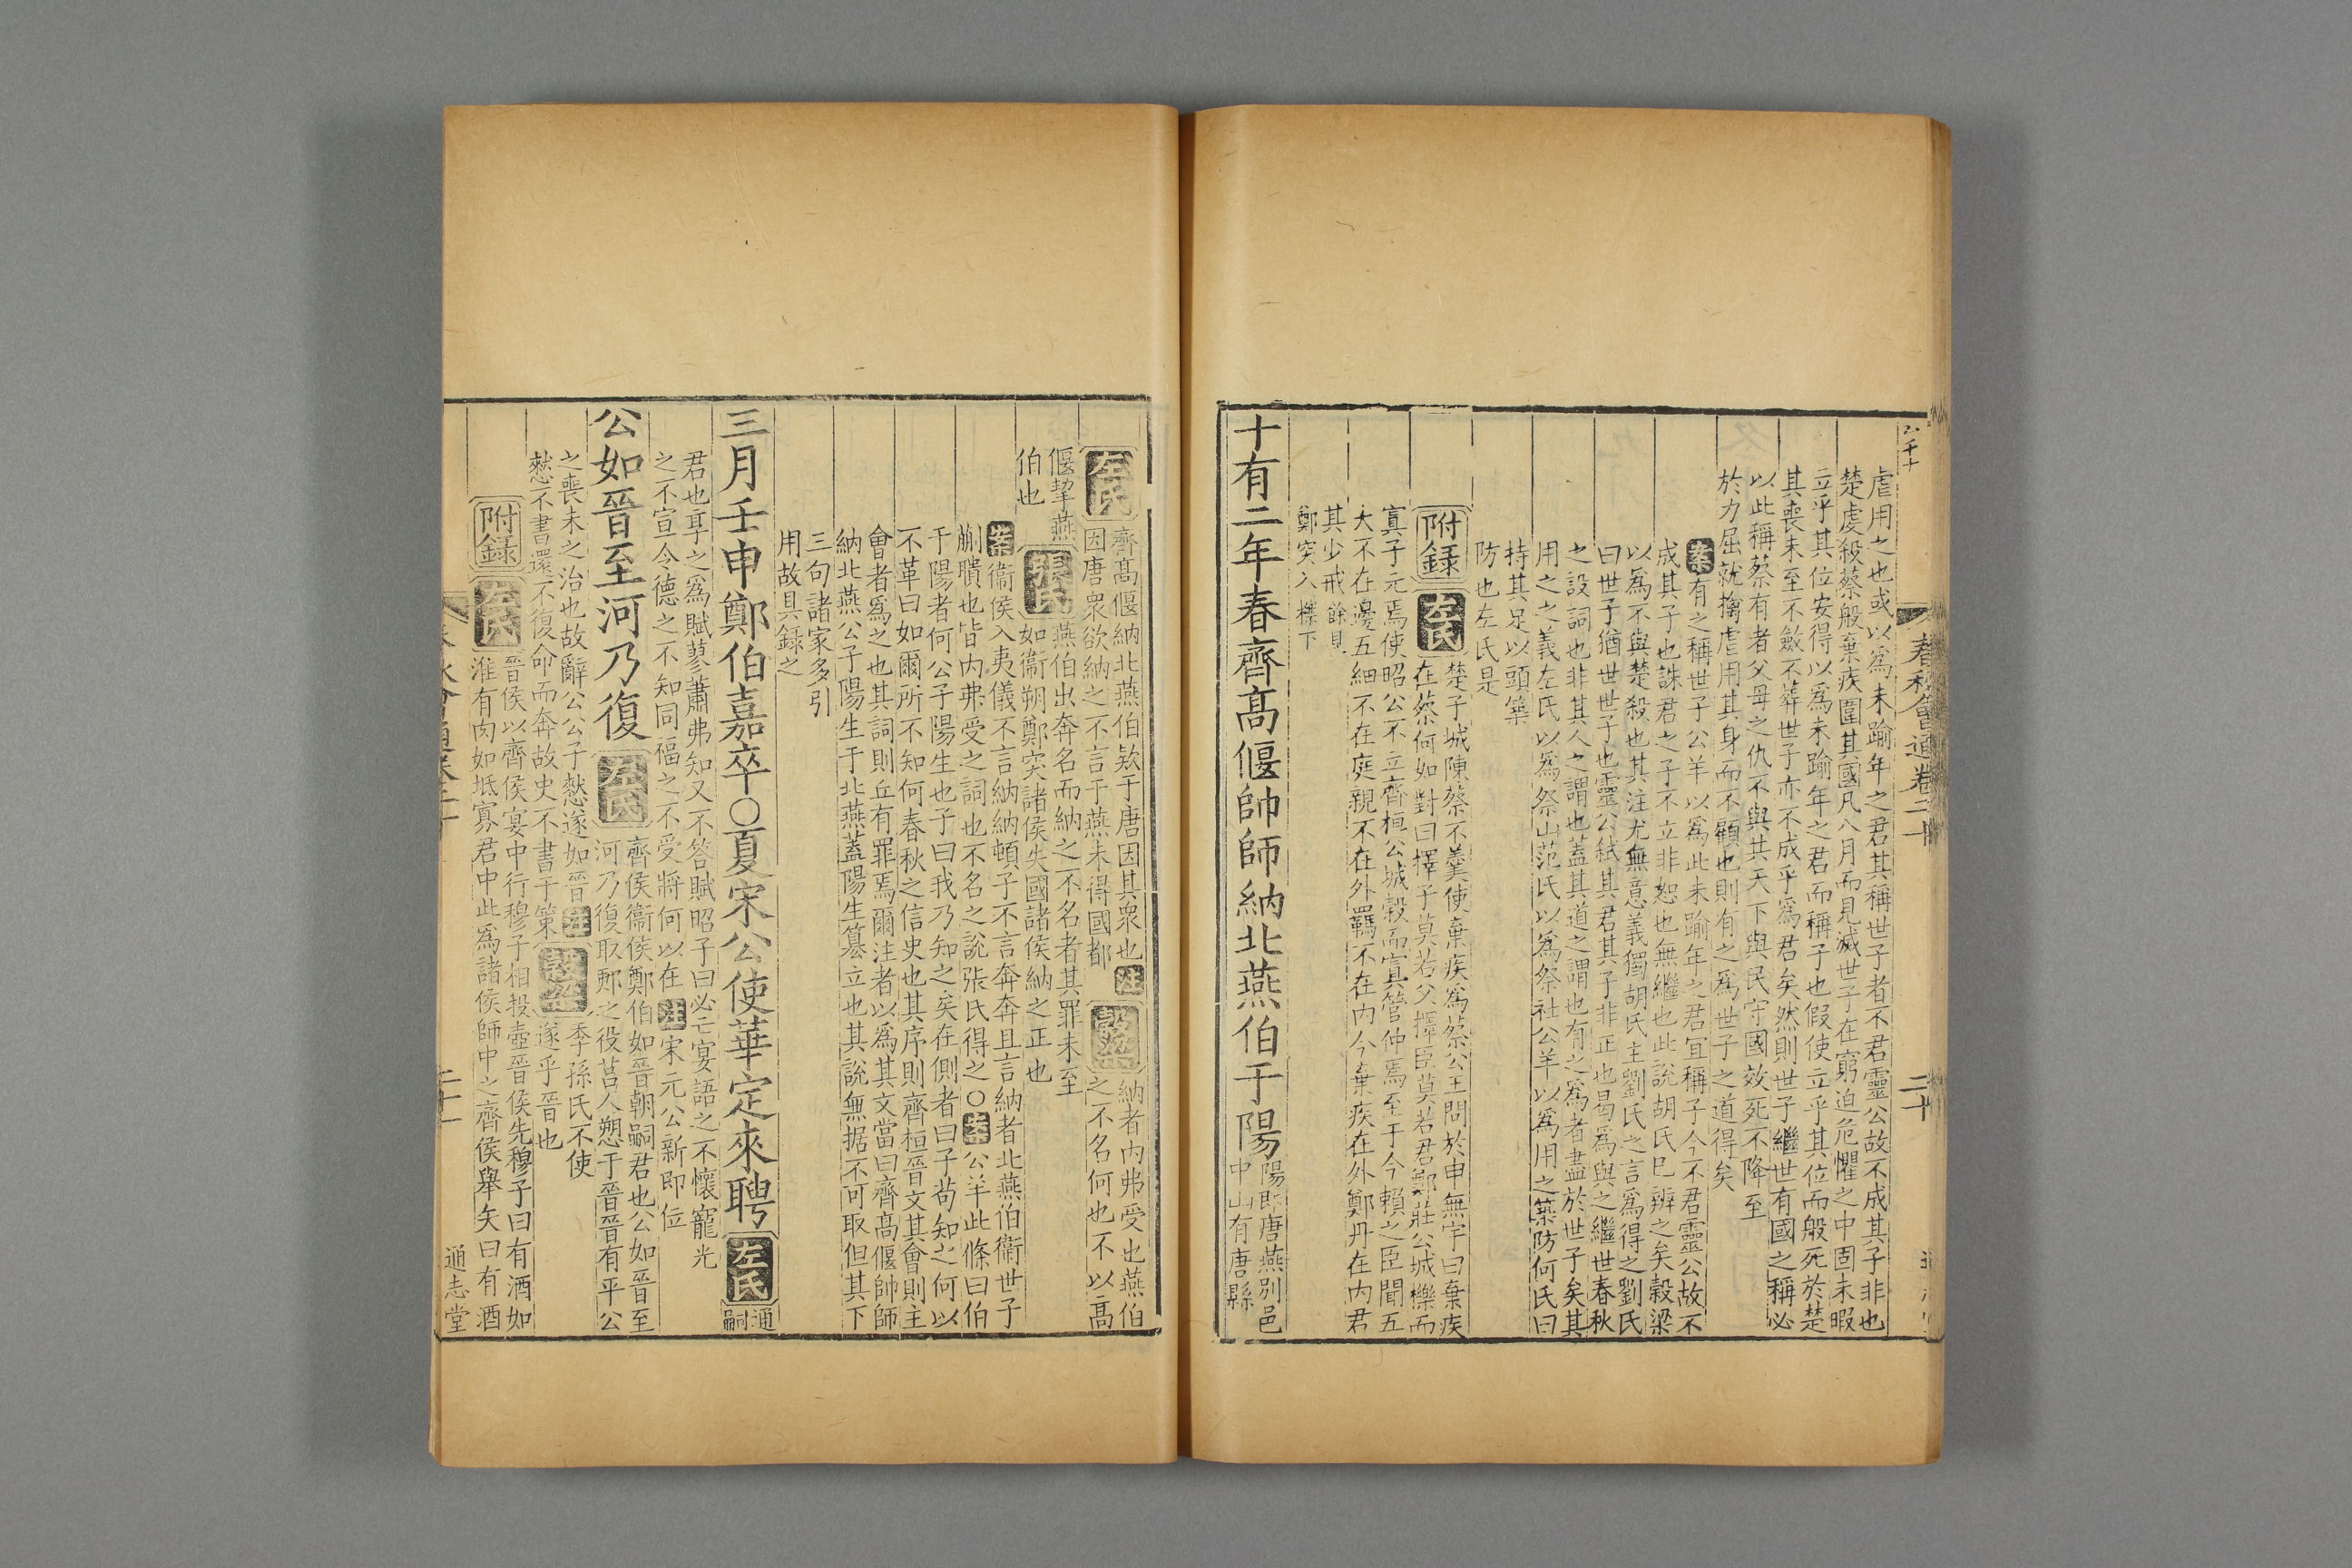 春秋會通卷二十
二十
虐用之也或以為未踰年之君其稱世子者不君靈公故不成其子非也
楚虔殺蔡般棄疾圍其國凡八月而見滅世子在窮迫危懼之中固未暇
立乎其位安得以為未踰年之君而稱子也假使立乎其位而般死於楚
其喪未至不斂不葬世子亦不成乎為君矣然則世子繼世有國之稱必
以此稱蔡有者父母之仇不與共天下與民守國效死不降至
於力屈就擒虐用其身而不顧也則有之為世子之道得矣
案有之稱世子公羊以為此未踰年之君宜稱子今不君靈公故不
成其子也誅君之子不立非怒也無繼也此說胡氏已辨之矣穀梁
以為不與楚殺也其注尤無意義獨胡氏主劉氏之言為得之劉氏
曰世子猶世世子也靈公弒其君其子非正也曷為與之繼世春秋
之設詞也非其人之謂也蓋其道之謂也有之為者盡於世子矣其
用之之義左氏以為祭山范氏以為祭社公羊以為用之築防何氏曰
持其足以頭築
防也左氏是
附錄
左氏
楚子城陳蔡不羹使棄疾為蔡公王問於申無宇曰棄疾
在蔡何如對曰擇子莫若父擇臣莫若君鄭莊公城櫟而
寘子元焉使昭公不立齊桓公城穀而寘管仲焉至于今賴之臣聞五
大不在邊五細不在庭親不在外羈不在內今棄疾在外鄭丹在內君
其少戒餘見
鄭突入櫟下
十有二年春齊高偃帥師納北燕伯于陽
陽即唐燕別邑
中山有唐縣
左氏
齊高偃納北燕伯欵于唐因其衆也注
因唐衆欲納之不言于燕未得國都
穀梁
納者內弗受也燕伯
之不名何也不以高
偃挈燕
伯也
張氏
燕伯出奔名而納之不名者其罪未至
如衞朔鄭突諸侯失國諸侯納之正也
案衞侯入夷儀不言納納頓子不言奔奔且言納者北燕伯衞世子
蒯聵也皆內弗受之詞也不名之說張氏得之〇案公羊此條曰伯
于陽者何公子陽生也子曰我乃知之矣在側者曰子苟知之何以
不革曰如爾所不知何春秋之信史也其序則齊桓晉文其會則主
會者為之也其詞則丘有罪焉爾注者以為其文當曰齊高偃帥師
納北燕公子陽生于北燕蓋陽生簒立也其說無据不可取但其下
三句諸家多引
用故具錄之
三月壬申鄭伯嘉卒〇夏宋公使華定來聘
左氏
通
嗣
君也享之為賦蓼蕭弗知又不答賦昭子曰必亡宴語之不懷寵光
之不宣令德之不知同福之不受將何以在注宋元公新即位
公如晉至河乃復
左氏
齊侯衞侯鄭伯如晉朝嗣君也公如晉至
河乃復取郠之役莒人愬于晉晉有平公
之喪未之治也故辭公公子憖遂如晉注
憖不書還不復命而奔故史不書于策
穀梁
季孫氏不使
遂乎晉也
附錄
左氏
晉侯以齊侯宴中行穆子相投壺晉侯先穆子曰有酒如
淮有肉如坻寡君中此為諸侯師中之齊侯舉矢曰有酒
二十一
通志堂